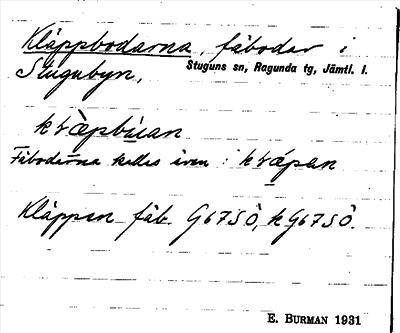 Kläppbodarna, fäbodar i
Stugubyn, Stuguns sn, Ragunda tg, Jämtl. l.
Fäbodarna kallas även :
Kläppen fäb. G67SÖ, k G67SÖ.
E. BURMAN 1931